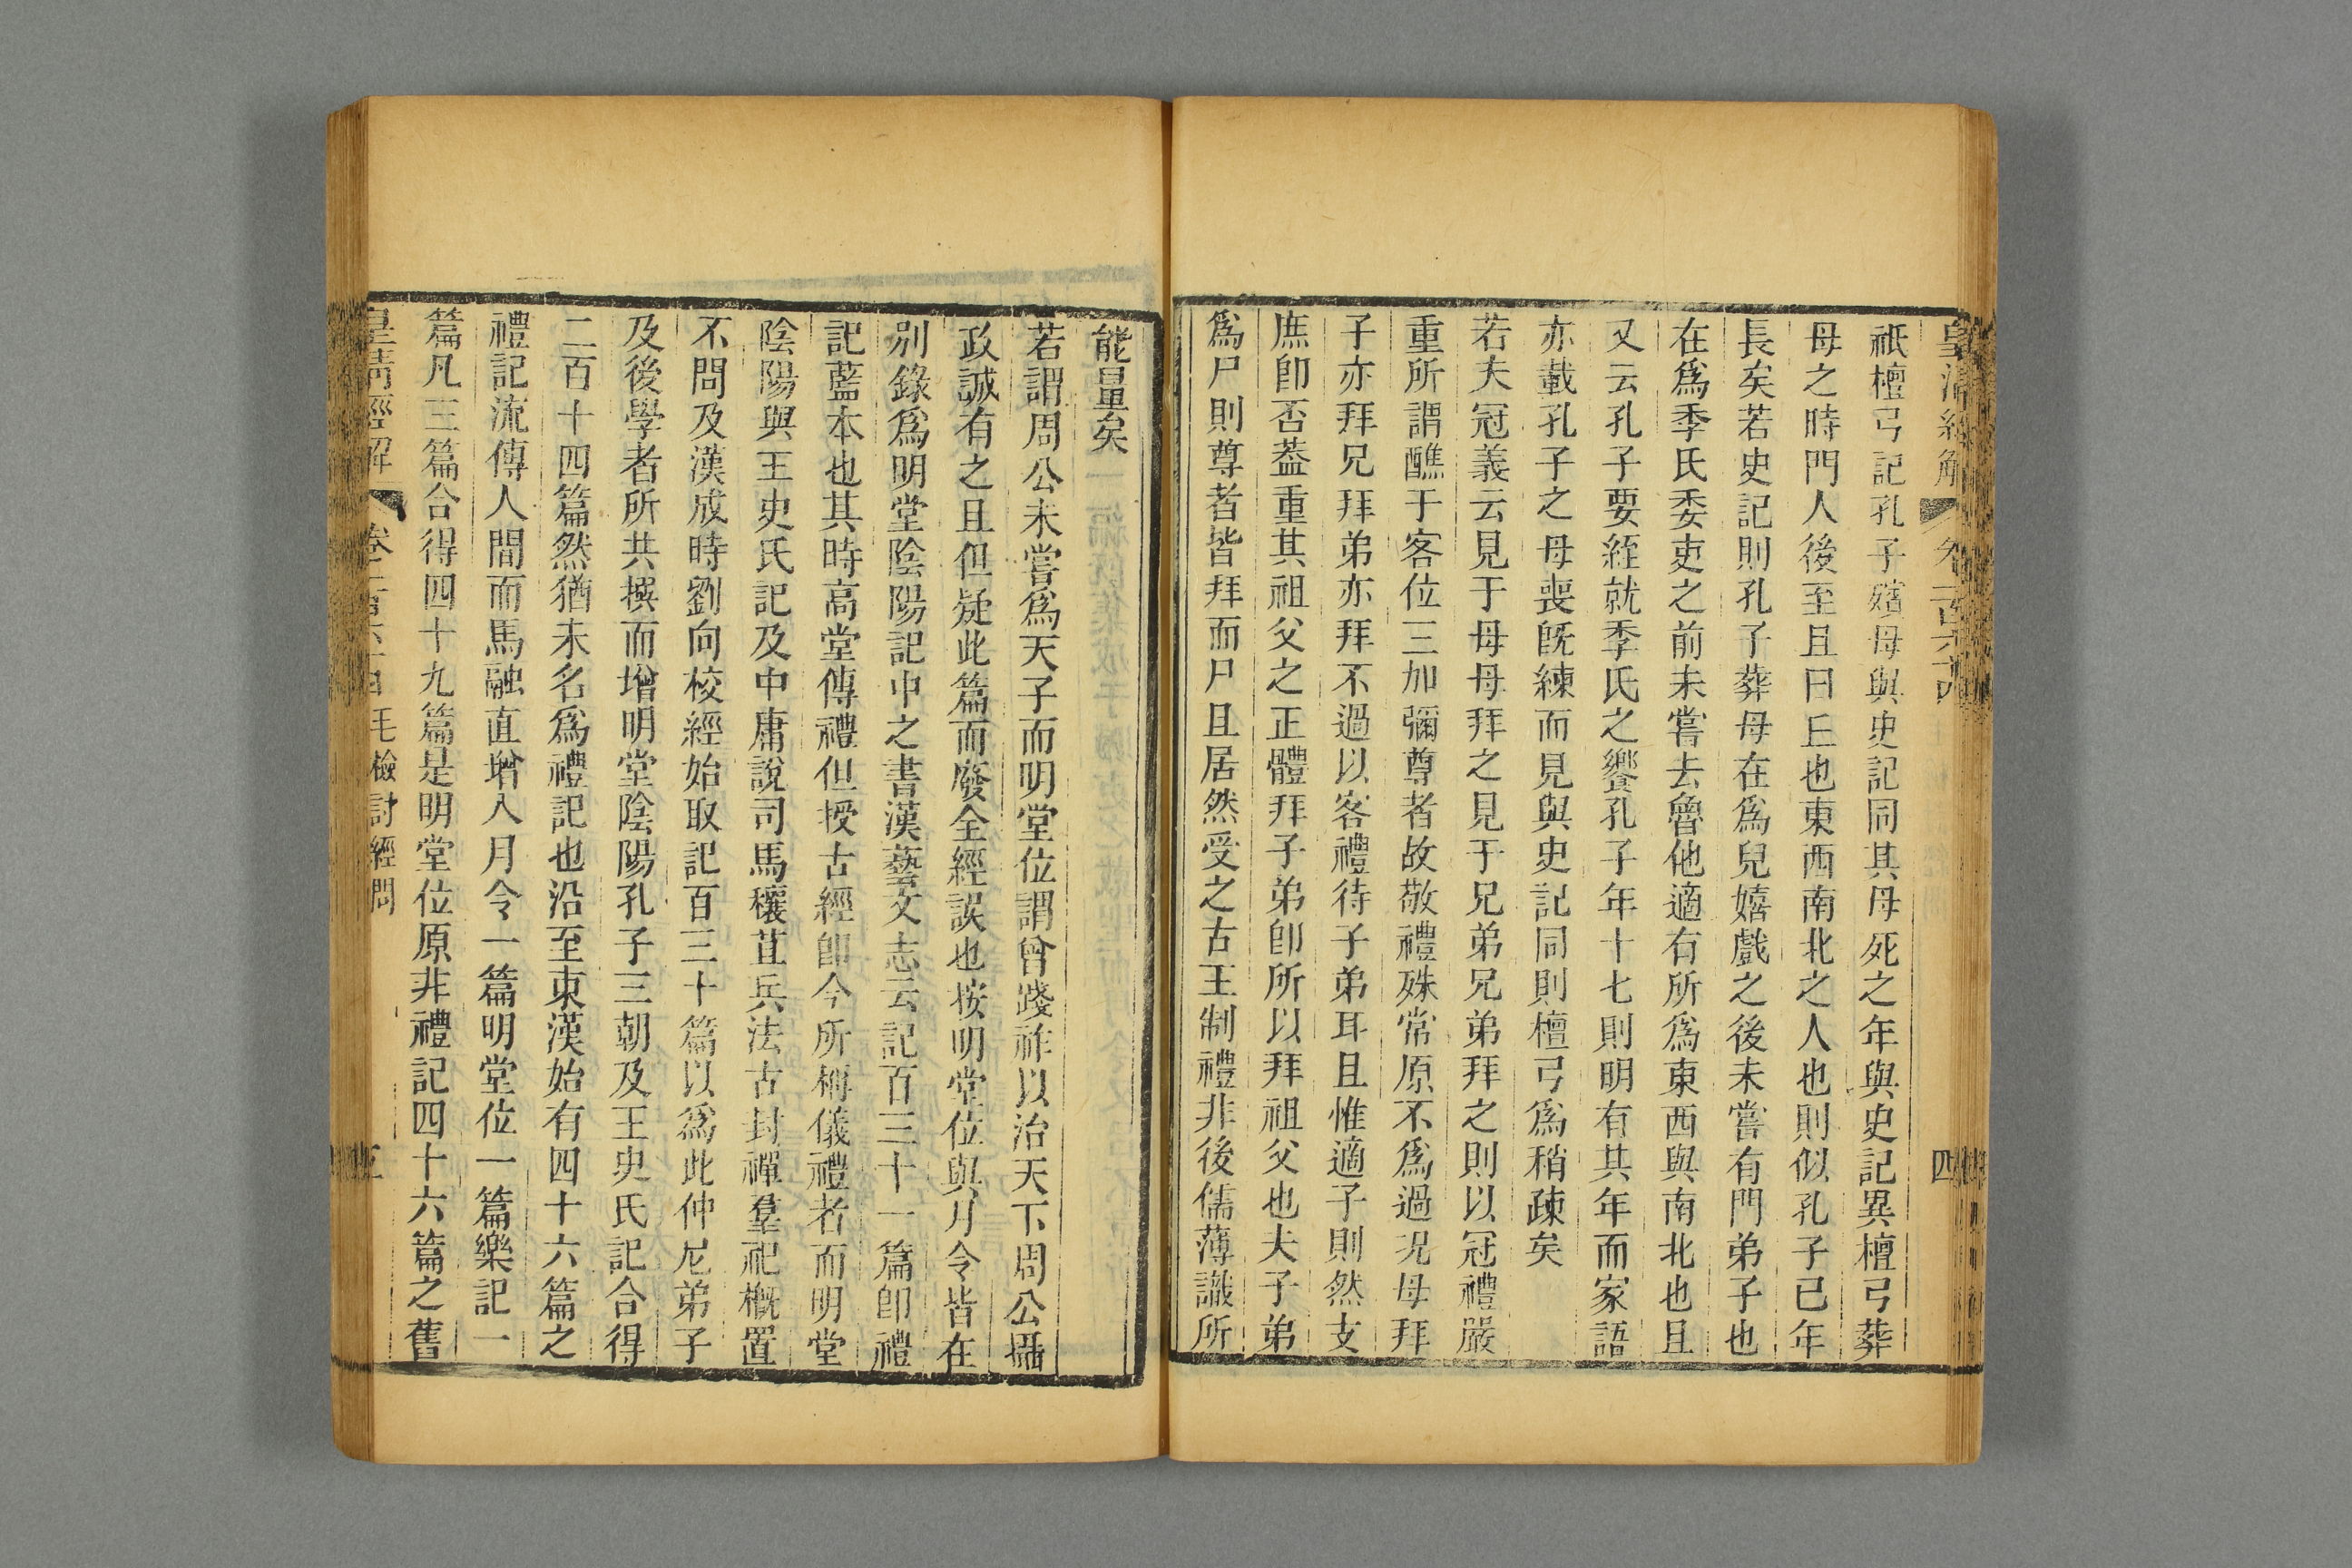 皇清經解 卷一百六十四 四
祇檀弓記孔子殯母與史記同其母死之年與史記異檀弓葬
母之時門人後至且曰丘也東西南北之人也則似孔子已年
長矣若史記則孔子葬母在爲兒嬉戲之後未嘗有門弟子也
在爲季氏委吏之前未嘗去魯他適有所爲東西與南北也且
又云孔子要絰就季氏之饗孔子年十七則明有其年而家語
亦載孔子之母喪旣練而見與史記同則檀弓爲稍疎矣
若夫冠義云見于母母拜之見于兄弟兄弟拜之則以冠禮嚴
重所謂醮于客位三加彌尊者故敬禮殊常原不爲過況母拜
子亦拜兄拜弟亦拜不過以客禮待子弟耳且惟適子則然支
庶卽否葢重其祖父之正體拜子弟卽所以拜祖父也夫子弟
爲尸則尊者皆拜而尸且居然受之古王制禮非後儒薄識所
能量矣
若謂周公未嘗爲天子而明堂位謂曾踐祚以治天下周公攝
政誠有之且但疑此篇而廢全經誤也按明堂位與月令皆在
別錄爲明堂陰陽記中之書漢藝文志云記百三十一篇卽禮
記藍本也其時高堂傳禮但授古經卽今所稱儀禮者而明堂
陰陽與王史氏記及中庸說司馬穰苴兵法古封禪羣祀概置
不問及漢成時劉向校經始取記百三十篇以爲此仲尼弟子
及後學者所共撰而增明堂陰陽孔子三朝及王史氏記合得
二百十四篇然猶未名爲禮記也沿至東漢始有四十六篇之
禮記流傳人間而馬融直增入月令一篇明堂位一篇樂記一
篇凡三篇合得四十九篇是明堂位原非禮記四十六篇之舊
皇清經解 卷一百六十四 毛檢討經問 五